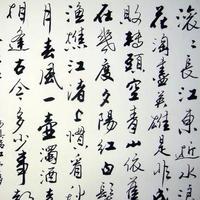 滚〻長江東逝水浪
花淘盡英雄是非成
敗轉頭空青山依舊
在幾度夕陽紅白髮
漁樵江渚上慣看秋
月春風一壺濁酒喜
相逢古今多少事都